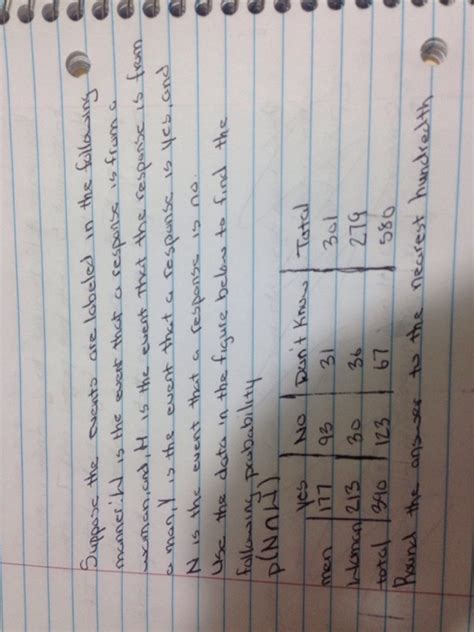 Suppose the events are labeled in the following
manner: W is the event that a response is from a
woman, and, H is the event that the response is from
a man, Y is the event that a response is yes, and
N is the event that a response is no.
Use the data in the figure below to find the
following probability
P(N∩W)
Yes No Don't Know Total
men 177 93 31 301
Woman 213 30 36 279
total 390 123 67 580
Round the answer to the nearest hundredth